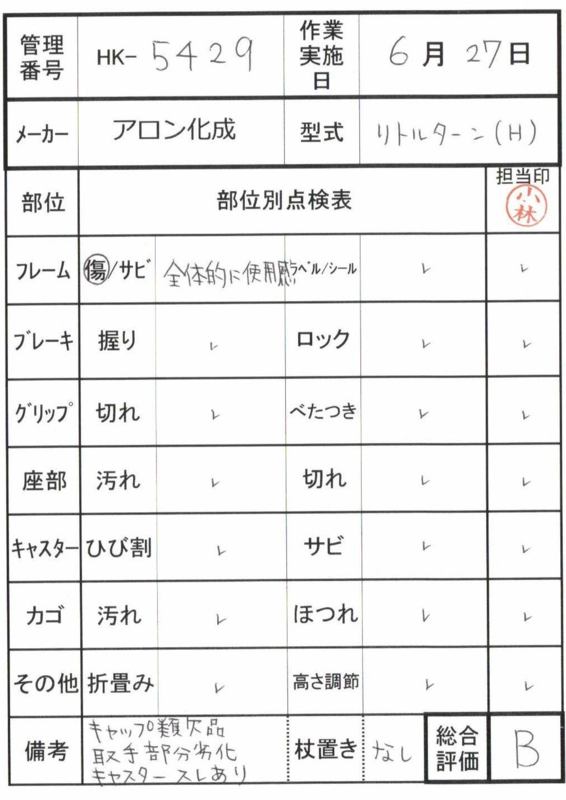 管理番号 HK-5429 作業実施日 6月27日
メーカー アロン化成 型式 リトルターン(H)
部位 部位別点検表 担当印 小林
フレーム 傷/サビ 全体的に使用感 ラベル/シール レ レ
ブレーキ 握り レ ロック レ レ
グリップ 切れ レ べたつき レ レ
座部 汚れ レ 切れ レ レ
キャスター ひび割 レ サビ レ レ
カゴ 汚れ レ ほつれ レ レ
その他 折畳み レ 高さ調節 レ レ
備考 キャップ類欠品
取手部分劣化
キャスタースレあり
杖置き なし 総合評価 B